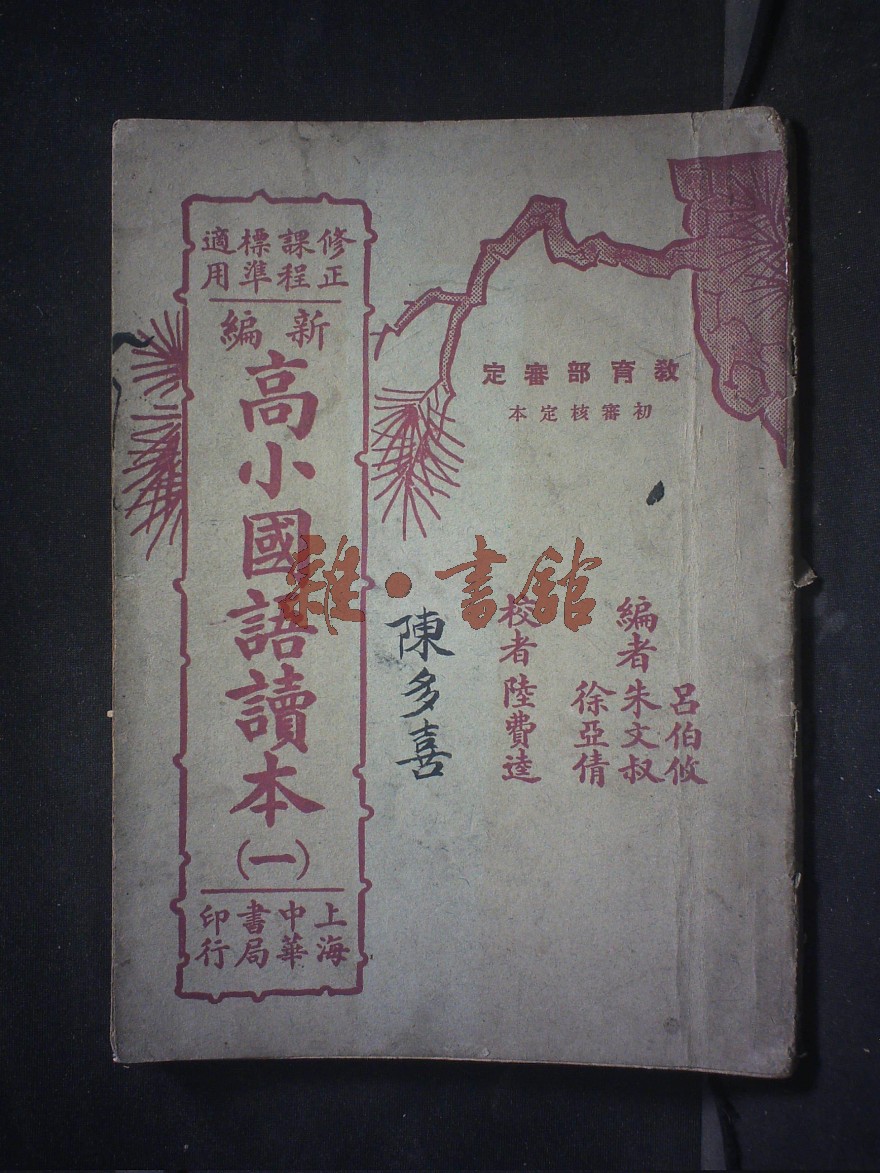 教育部審定
初審核定本
編者
呂伯攸
朱文叔
徐亞倩
校者 陸費逵
陳多喜
修正
課程
標準
適用
新編
高小國語讀本
(一)
上海
中華
書局
印行
雜·書舘